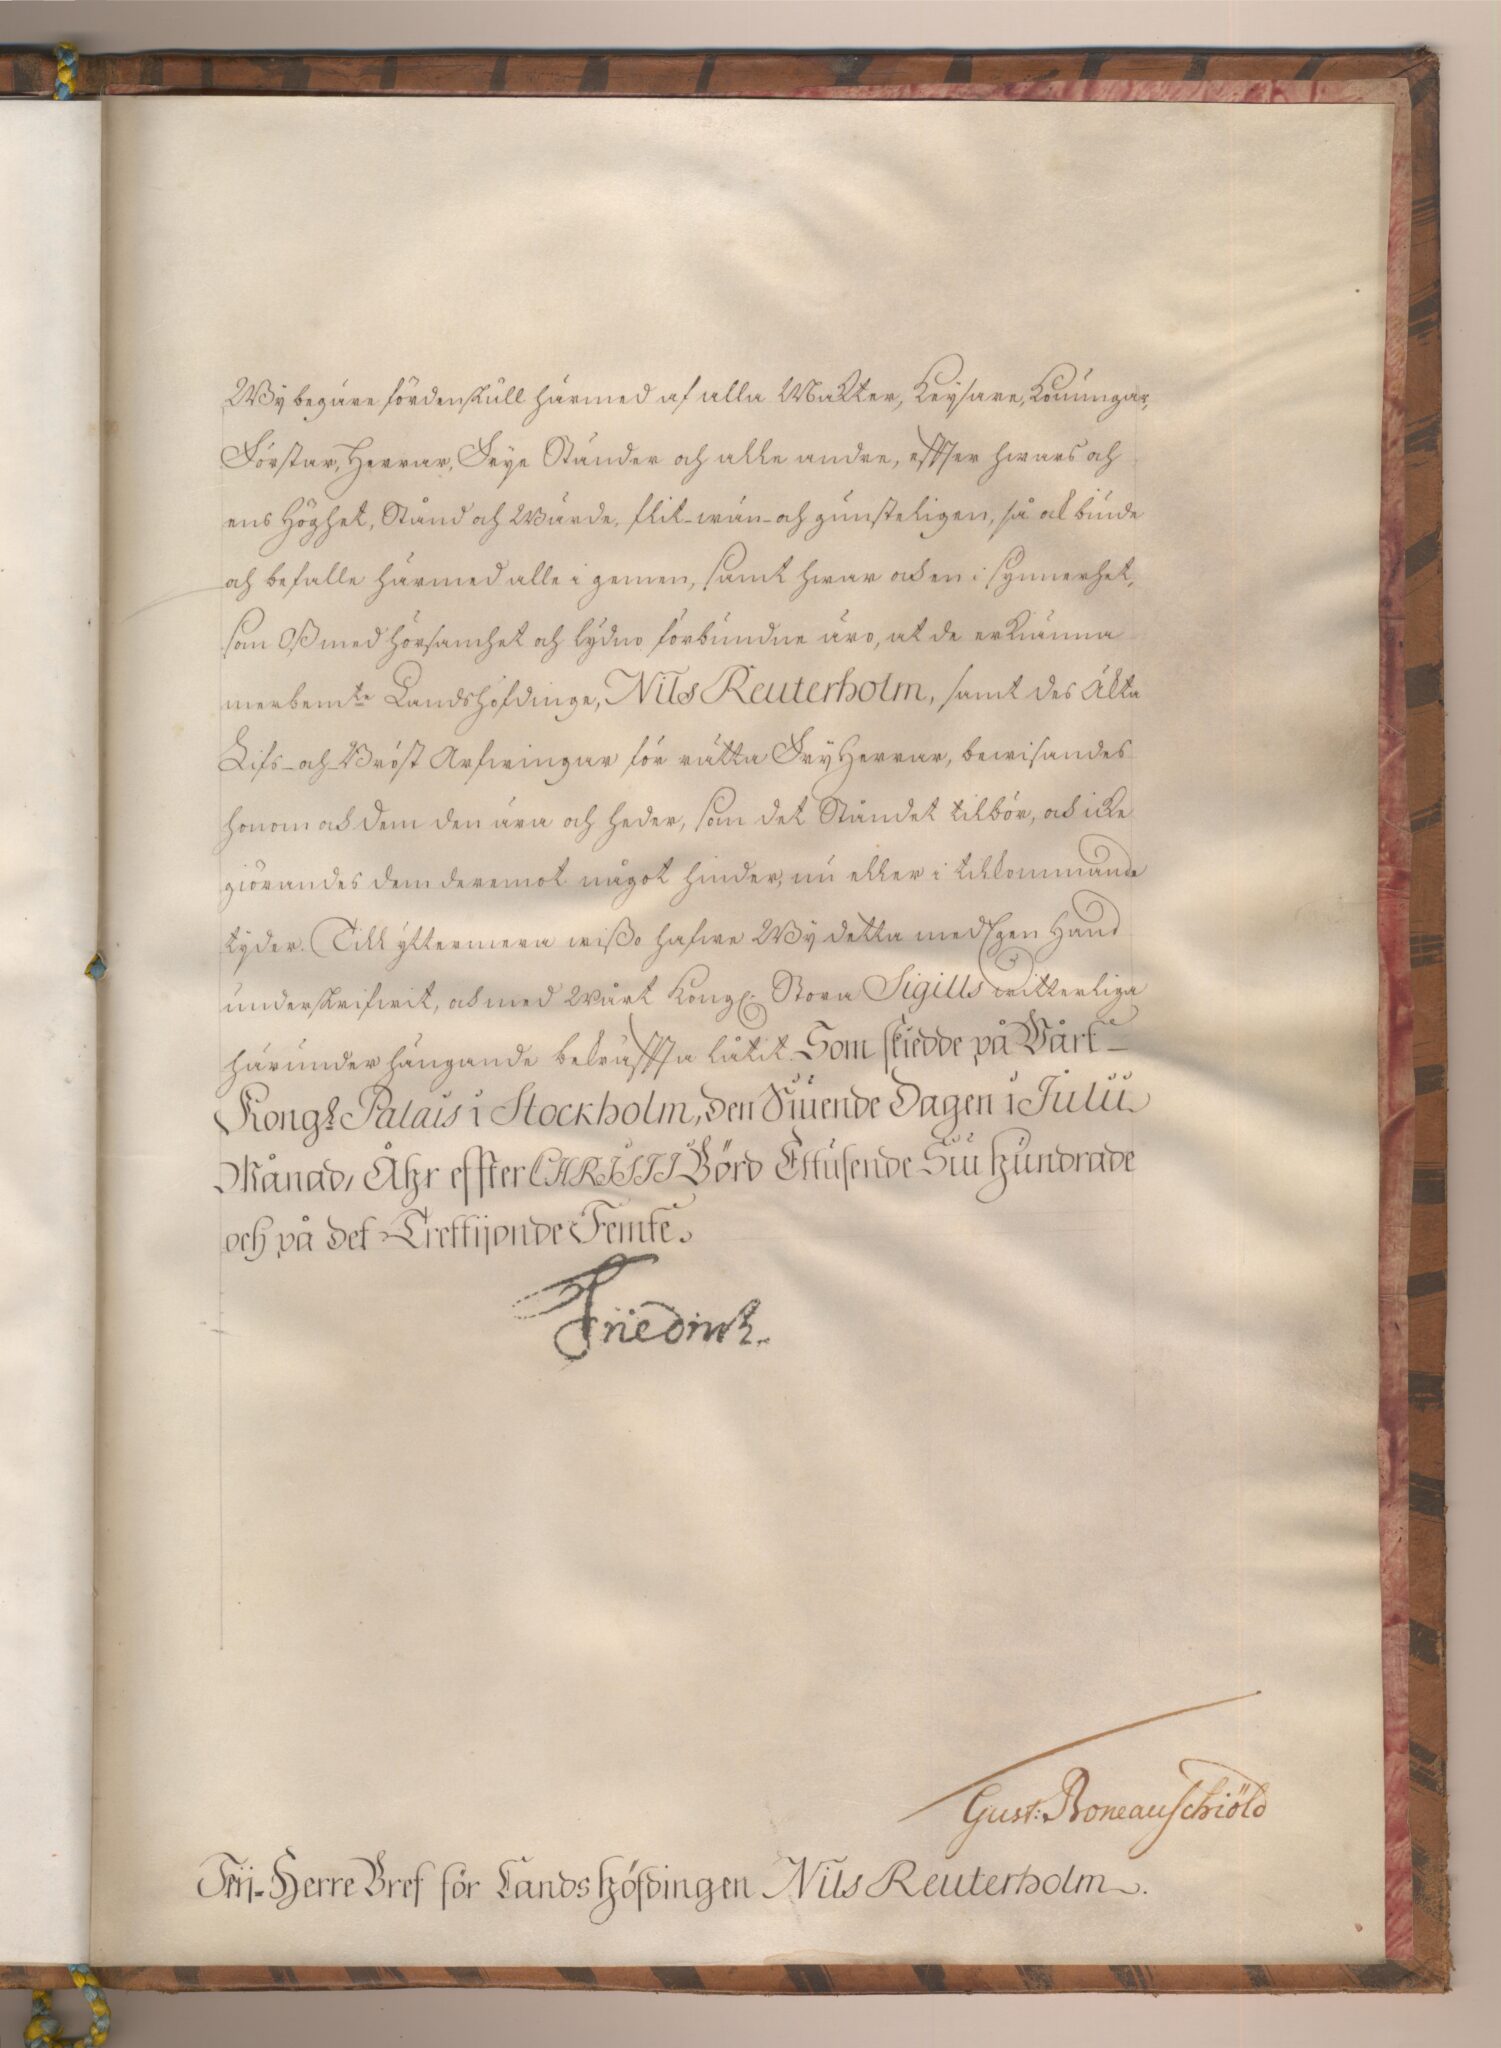 Wy begäre fördenskull härmed af alla Makter, Keysare, Konungar,
Förstar, Herrar, Frye Ständer och alle andre, effter hwars och
ens Höghet, Stånd och Wärde, flit-wän-och gunsteligen, så ok biude
och befalle härmed alle i gemen, samt hwar ok en i synnerhet,
som Oß med hörsamhet och lydno förbundne äro, at de erkiänna
merbemte Landshöfdinge, Nils Reuterholm, samt des Äkta
Lifs-och-Bröst Arfwingar för rätta Fry Herrar, bewisandes
honom ok dem den ära och heder, som det Ståndet tilhör, ok icke
giörandes dem deremot något hinder, nu eller i tilkommande
tyder. Till yttermera wißo hafwe Wy detta med Egen Hand
underskrifwit, ok med Wårt Kongl. Stora Sigills witterliga
härunder hängande bekräffta låtit. Som skiedde på Wårt
Kongl. Palais i Stockholm, den Siuende Dagen i Julii
Månad, Åhr effter CHRISTI Börd Ettusende Siu hundrade
och på det Trettijonde Femte.
Friedrich.
Gust: Boneauschiöld
Frij-Herre Bref för Landshöfdingen Nils Reuterholm.